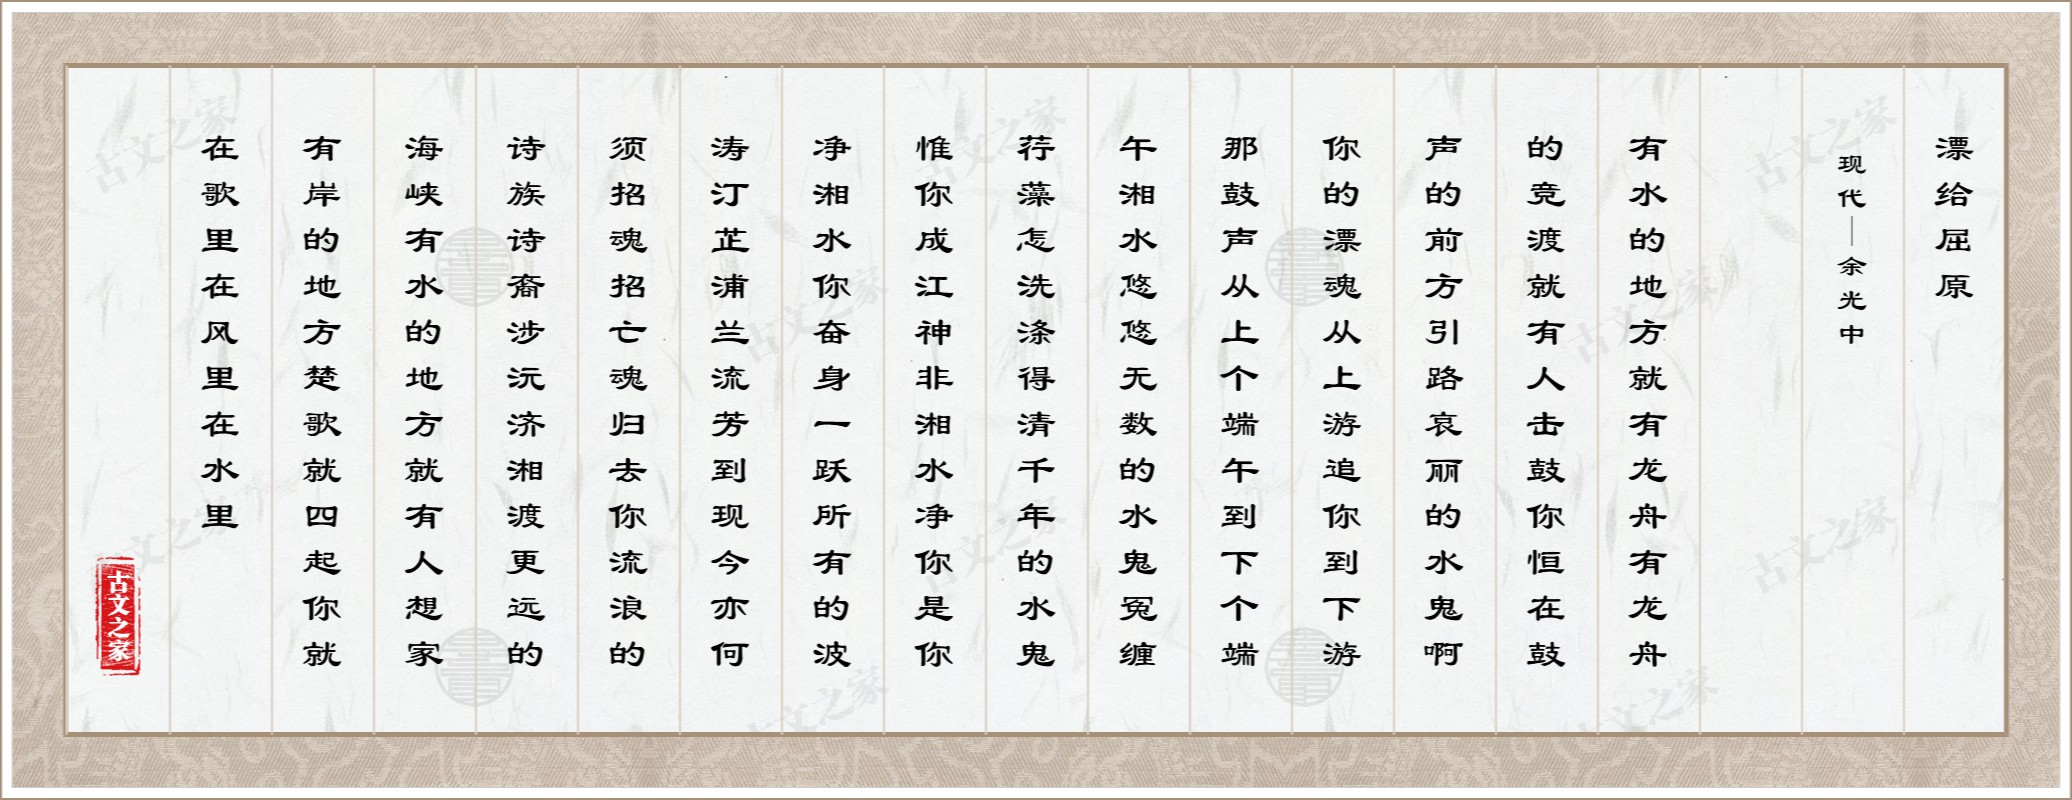 漂给屈原
现代—余光中
有水的地方就有龙舟有龙舟
的竞渡就有人击鼓你恒在鼓
声的前方引路哀丽的水鬼啊
你的漂魂从上游追你到下游
那鼓声从上个端午到下个端
午湘水悠悠无数的水鬼冤缠
荇藻怎洗涤得清千年的水鬼
惟你成江神非湘水净你是你
净湘水你奋身一跃所有的波
涛汀芷浦兰流芳到现今亦何
须招魂招亡魂归去你流浪的
诗族诗裔涉沅济湘渡更远的
海峡有水的地方就有人想家
有岸的地方楚歌就四起你就
在歌里在风里在水里
古文之家